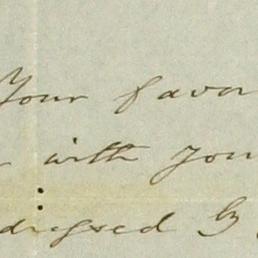 Your favor
with you
dressed G